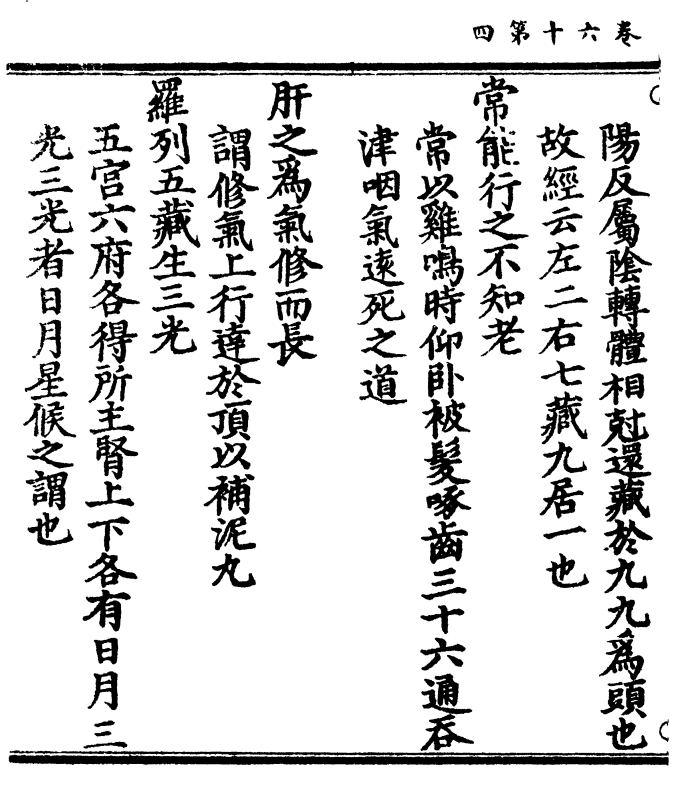 卷六十第四
陽反屬陰轉體相尅還藏於九九爲頭也
故經云左二右七藏九居一也
常能行之不知老
常以雞鳴時仰卧被髮啄齒三十六通吞
津咽氣遠死之道
肝之爲氣修而長
謂修氣上行達於頂以補泥丸
羅列五藏生三光
五宫六府各得所主腎上下各有日月三
光三光者日月星候之謂也